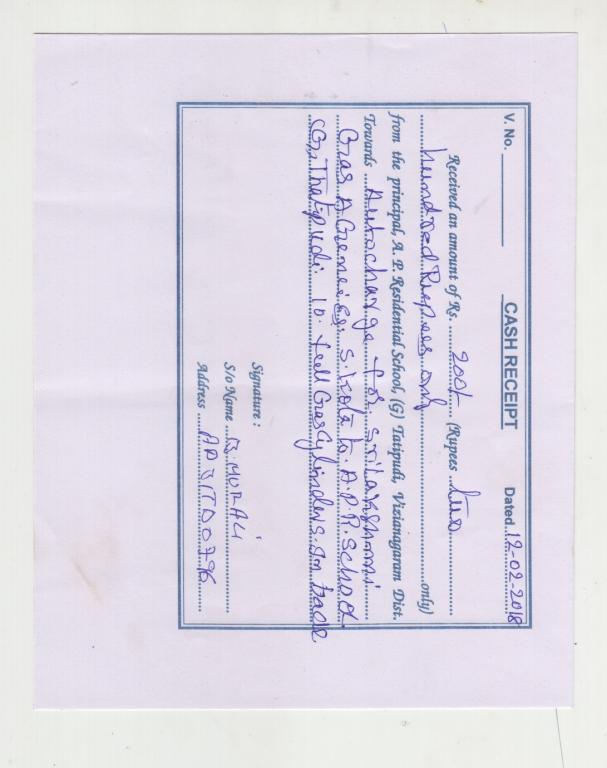 V. No. CASH RECEIPT Dated 12-02-2018
Received an amount of Rs. 200/- (Rupees two
hundred Rupees only only)
from the principal, A. P. Residential School, (G) Tatipudi, Vizianagaram Dist.
Towards Autocharge for Srilakshmi
Gas Agencies S.Kota to A.P.R. School
(G) Thatipudi 10 full Gas Cylinders
Signature :
S/o Name MURALI
Address